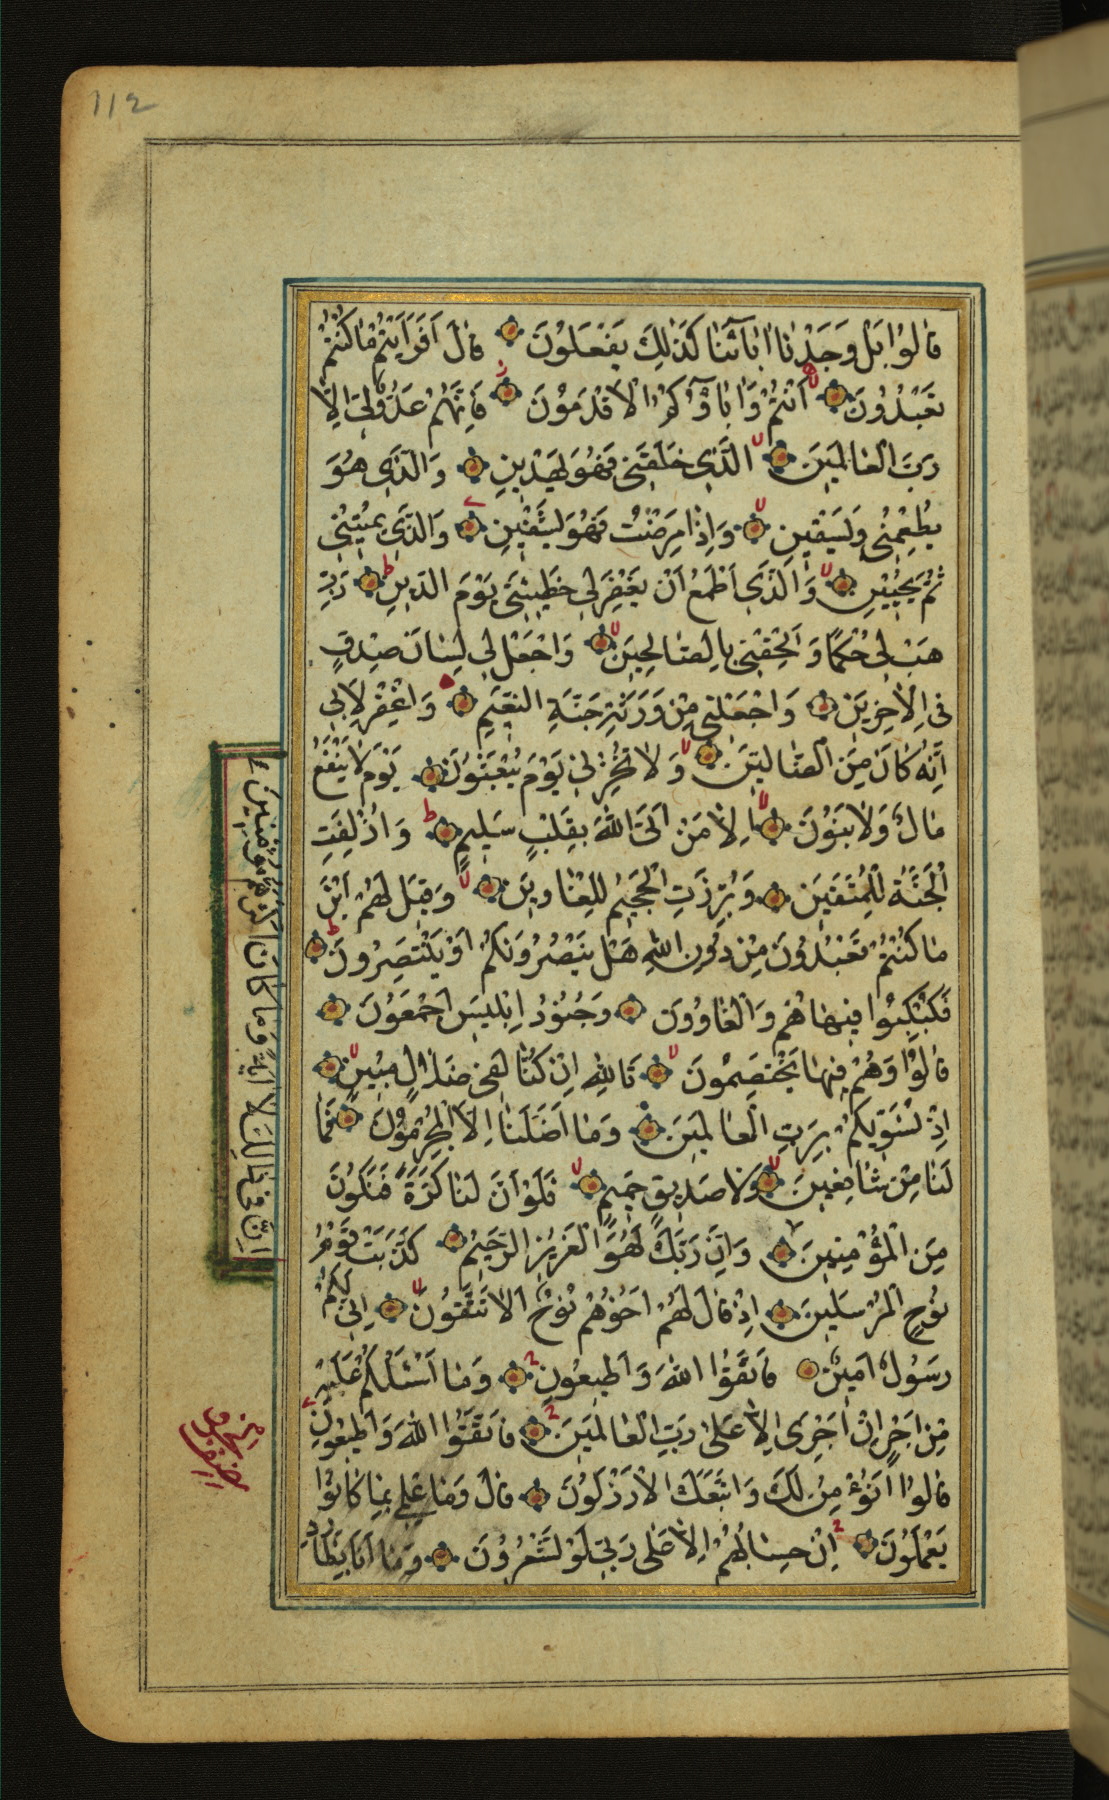 112
قَالُوْا بَلْ وَجَدْنَا اٰبَآئَنَا كَذٰلِكَ يَفْعَلُوْنَ قَالَ اَفَرَاَيْتُمْ مَا كُنْتُمْ
تَعْبُدُوْنَ اَنْتُمْ وَاٰبَاؤُكُمُ الْاَقْدَمُوْنَ فَاِنَّهُمْ عَدُوٌّ لِىْ اِلَّا
رَبَّ الْعَالَمِيْنَ الَّذِى خَلَقَنِى فَهُوَ يَهْدِيْنِ وَالَّذِى هُوَ
يُطْعِمُنِى وَيَسْقِيْنِ وَاِذَا مَرِضْتُ فَهُوَ يَشْفِيْنِ وَالَّذِى يُمِيْتُنِى
ثُمَّ يُحْيِيْنِ وَالَّذِى اَطْمَعُ اَنْ يَغْفِرَ لِى خَطِيْئَتِى يَوْمَ الدِّيْنِ رَبِّ
هَبْ لِى حُكْمًا وَاَلْحِقْنِى بِالصَّالِحِيْنَ وَاجْعَلْ لِى لِسَانَ صِدْقٍ
فِى الْاٰخِرِيْنَ وَاجْعَلْنِى مِنْ وَرَثَةِ جَنَّةِ النَّعِيْمِ وَاغْفِرْ لِاَبِى
اِنَّهُ كَانَ مِنَ الضَّالِّيْنَ وَلَا تُخْزِنِى يَوْمَ يُبْعَثُوْنَ يَوْمَ لَا يَنْفَعُ
مَالٌ وَلَا بَنُوْنَ اِلَّا مَنْ اَتَى اللهَ بِقَلْبٍ سَلِيْمٍ وَاُزْلِفَتِ
الْجَنَّةُ لِلْمُتَّقِيْنَ وَبُرِّزَتِ الْجَحِيْمُ لِلْغَاوِيْنَ وَقِيْلَ لَهُمْ اَيْنَ
مَا كُنْتُمْ تَعْبُدُوْنَ مِنْ دُوْنِ اللهِ هَلْ يَنْصُرُوْنَكُمْ اَوْ يَنْتَصِرُوْنَ
فَكُبْكِبُوْا فِيْهَا هُمْ وَالْغَاوُوْنَ وَجُنُوْدُ اِبْلِيْسَ اَجْمَعُوْنَ
قَالُوْا وَهُمْ فِيْهَا يَخْتَصِمُوْنَ تَاللهِ اِنْ كُنَّا لَفِى ضَلَالٍ مُبِيْنٍ
اِذْ نُسَوِّيْكُمْ بِرَبِّ الْعَالَمِيْنَ وَمَا اَضَلَّنَا اِلَّا الْمُجْرِمُوْنَ فَمَا
لَنَا مِنْ شَافِعِيْنَ وَلَا صَدِيْقٍ حَمِيْمٍ فَلَوْ اَنَّ لَنَا كَرَّةً فَنَكُوْنَ
مِنَ الْمُؤْمِنِيْنَ وَاِنَّ رَبَّكَ لَهُوَ الْعَزِيْزُ الرَّحِيْمُ كَذَّبَتْ قَوْمُ
نُوْحٍ الْمُرْسَلِيْنَ اِذْ قَالَ لَهُمْ اَخُوْهُمْ نُوْحٌ اَلَا تَتَّقُوْنَ اِنِّى لَكُمْ
رَسُوْلٌ اَمِيْنٌ فَاتَّقُوا اللهَ وَاَطِيْعُوْنِ وَمَا اَسْئَلُكُمْ عَلَيْهِ
مِنْ اَجْرٍ اِنْ اَجْرِىَ اِلَّا عَلٰى رَبِّ الْعَالَمِيْنَ فَاتَّقُوا اللهَ وَاَطِيْعُوْنِ
قَالُوْا اَنُؤْمِنُ لَكَ وَاتَّبَعَكَ الْاَرْذَلُوْنَ قَالَ وَمَا عِلْمِى بِمَا كَانُوْا
يَعْمَلُوْنَ اِنْ حِسَابُهُمْ اِلَّا عَلٰى رَبِّى لَوْ تَشْعُرُوْنَ وَمَا اَنَا بِطَارِدِ
اِنَّ فِى ذٰلِكَ لَاٰيَةً وَمَا كَانَ اَكْثَرُهُمْ مُؤْمِنِيْنَ